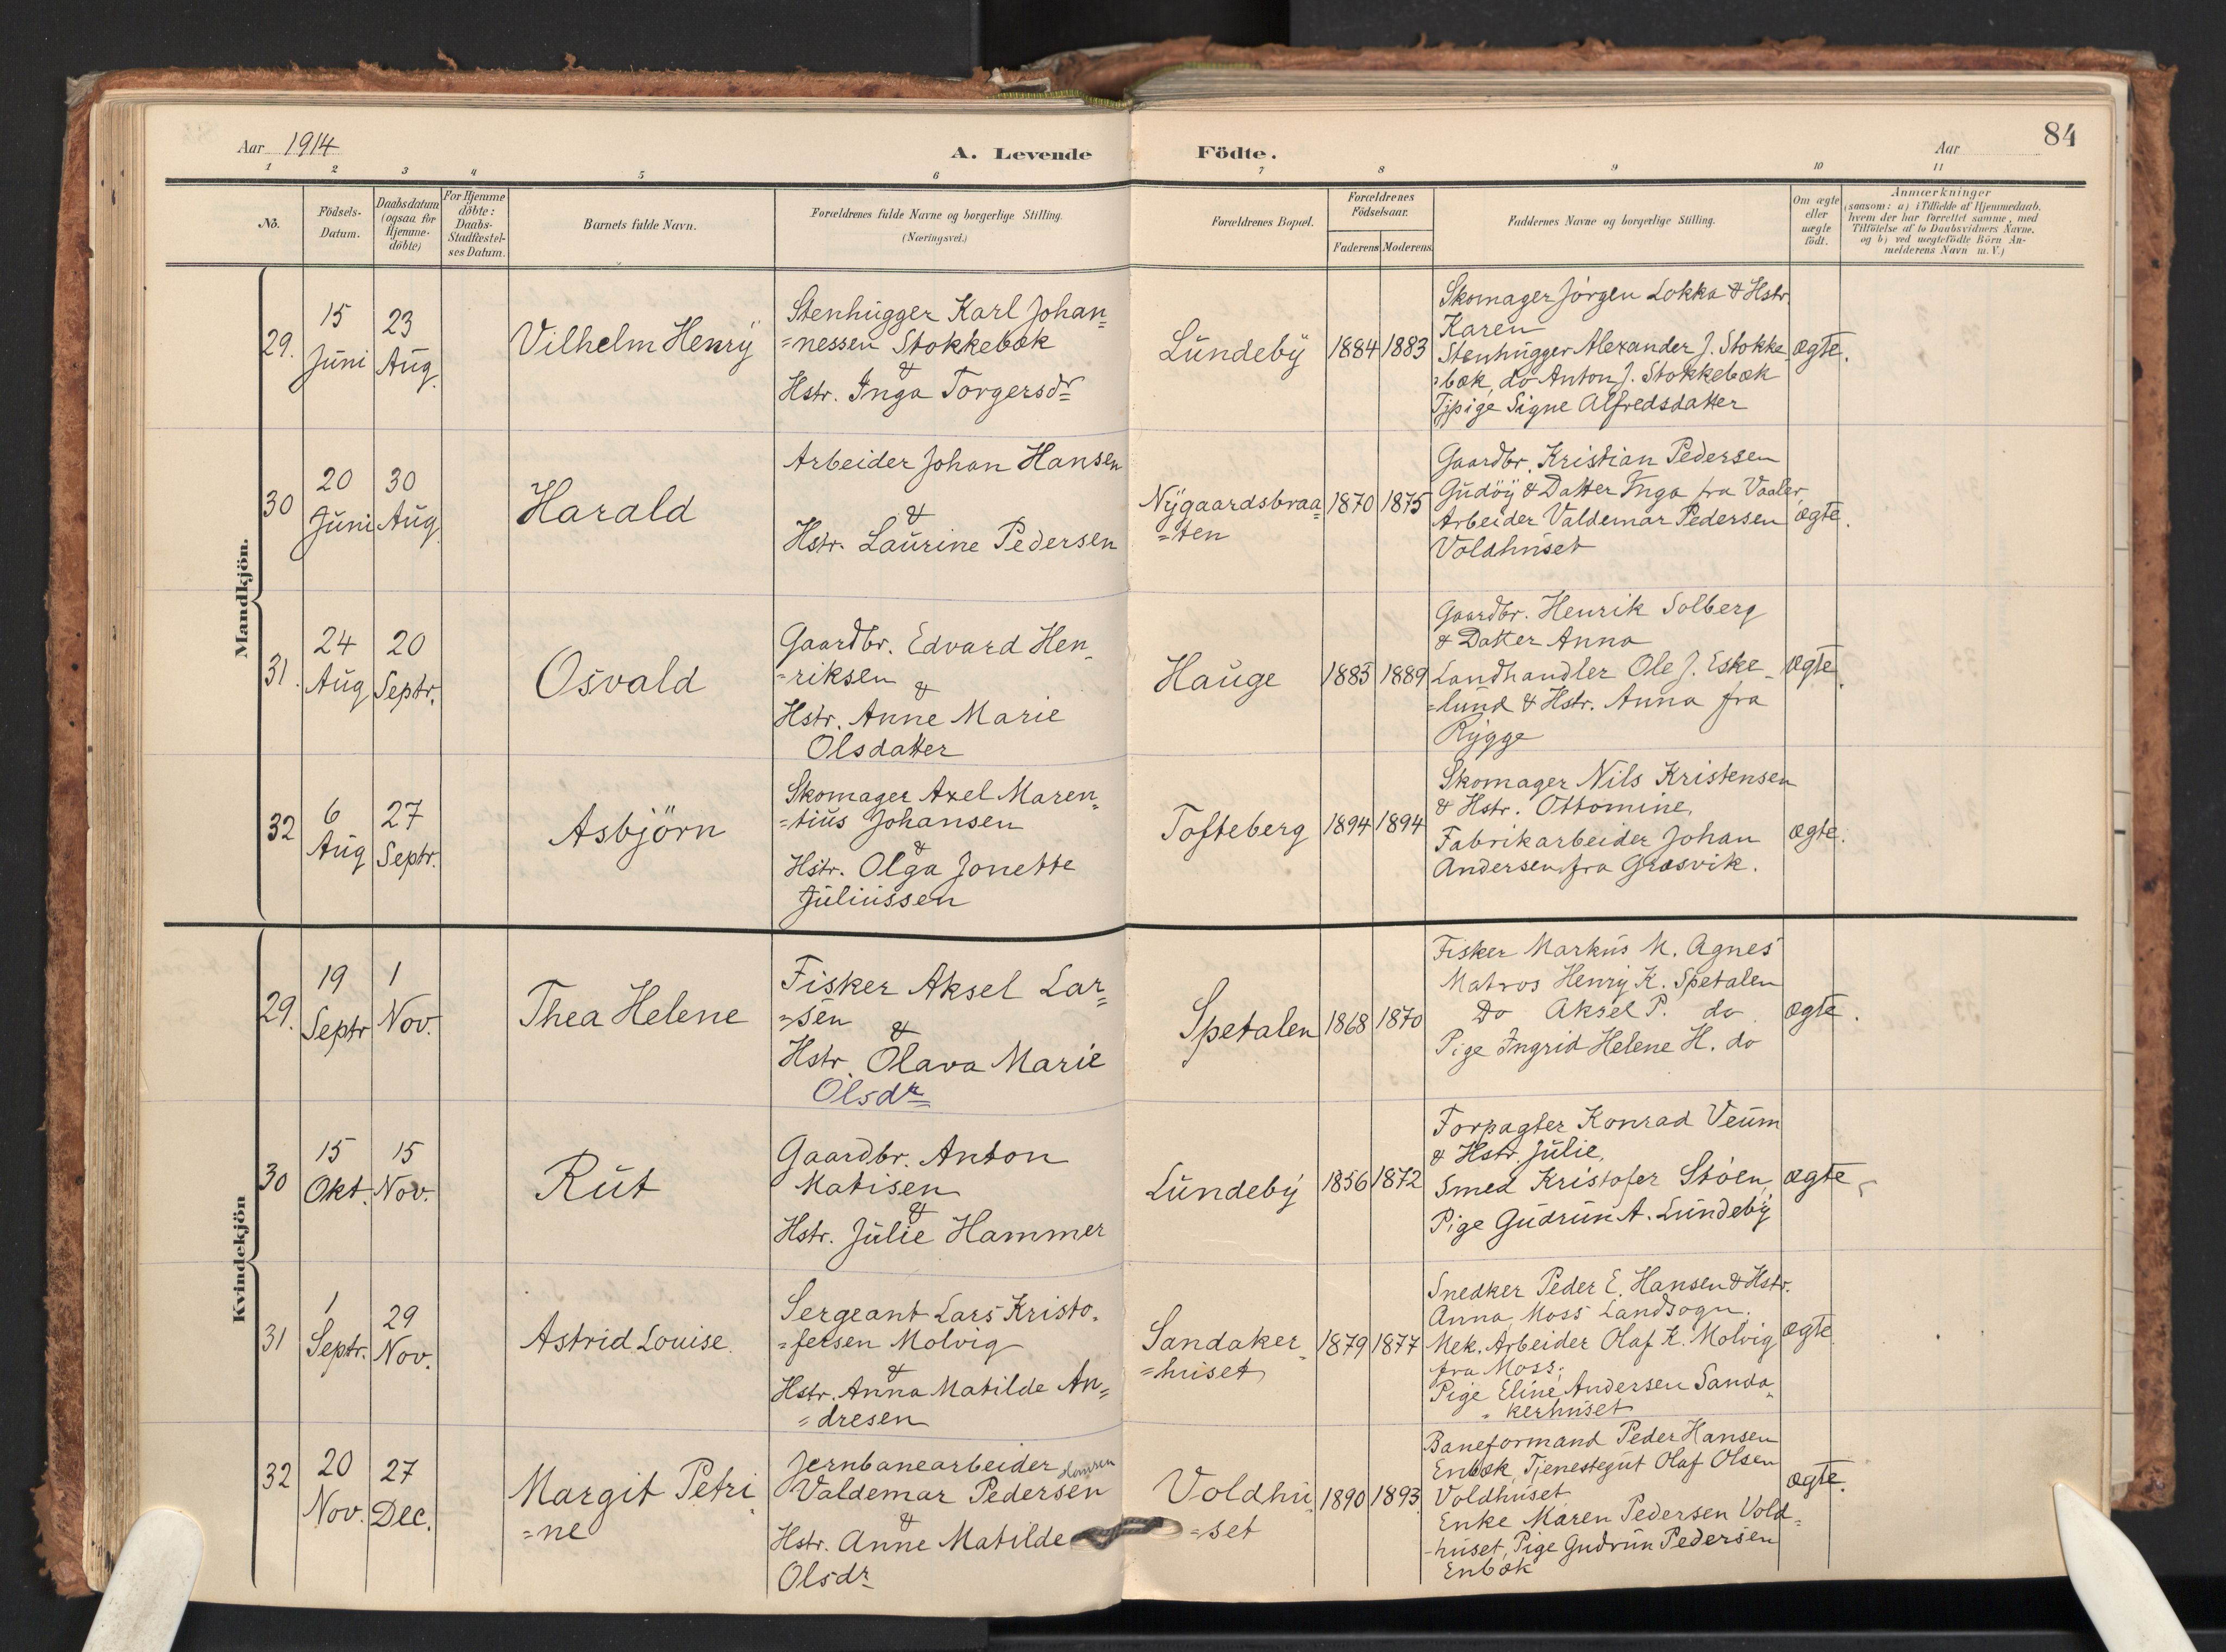 Aar 1914
A. Levende Födte.
Aar
84
1 2 3 4 5 6 7 8 9 10 11
No.
Födsels-
Datum.
Daabsdatum
(ogsaa for
Hjemme-
döbte)
For Hjemme
döbte:
Daabs-
Stadfæstel-
ses Datum.
Barnets fulde Navn.
Forældrenes fulde Navne og borgerlige Stilling.
(Næringsvei.)
Forældrenes Bopæl.
Forældrenes
Födselsaar.
Faderens Moderens
Faddernes Navne og borgerlige Stilling.
Om ægte
eller
uægte
födt.
Anmærkninger
(saasom: a) i Tilfælde af Hjemmedaab.
hvem der har forrettet samme, med
Tilföielse af to Daabsvidners Navne.
og b) ved uægtefödte Börn An-
melderens Navn m.V.)
Mandkjön.
29.
15
Juni
23
Aug.
Vilhelm Henry
Stenhugger Karl Johan=
=nessen Stokkebæk
&
Hstr. Inga Torgersdr
Lundeby
1884 1883
Skomager Jörgen Lokka & Hstr
Karen
Stenhugger Alexander J. Stokke
=bæk, do Anton J. Stokkebæk
Tjpige Signe Alfredsdatter
ægte.
30
20
Juni
30
Aug.
Harald
Arbeider Johan Hansen
&
Hstr. Laurine Pedersen
Nygaardsbraa=
=ten
1870 1875
Gaardbr. Kristian Pedersen
Gudöy & Datter Inga fra Vaaler
Arbeider Valdemar Pedersen
Voldhuset
ægte.
31.
24
Aug
20
Septr.
Osvald
Gaardbr. Edvard Hen-
=riksen
&
Hstr. Anne Marie
Olsdatter
Hauge
1885 1889
Gaardbr. Henrik Solberg
& Datter Anna
Landhandler Ole J. Eske-
=lund & Hstr. Anna fra
Rygge
ægte.
32
6
Aug
27
Septr.
Asbjörn
Skomager Axel Maren=
=tius Johansen
&
Hstr. Olga Jonette
Juliussen
Tofteberg
1894 1894
Skomager Nils Kristensen
& Hstr. Ottomine,
Fabrikarbeider Johan
Andersen fra Græsvik.
ægte.
Kvindekjön
29.
19
Septr
1
Nov.
Thea Helene
Fisker Aksel Lar=
=sen
&
Hstr. Olava Marie
Olsdr
Spetalen
1868 1870
Fisker Markus M. Agnes
Matros Henry K. Spetalen
Do Aksel P. do
Pige Ingrid Helene H. do
ægte.
30
15
Okt.
15
Nov.
Rut
Gaardbr. Anton
Matisen
&
Hstr. Julie Hammer
Lundeby
1856 1872
Forpagter Konrad Veum
& Hstr. Julie,
Smed Kristofer Stöen,
Pige Gudrun A. Lundeby
ægte
31
1
Septr.
29
Nov.
Astrid Louise.
Sergeant Lars Kristo-
=fersen Molvig
&
Hstr. Anna Matilde An=
=dresen
Sandaker=
=huset
1879 1877
Snedker Peder E. Hansen & Hstr.
Anna, Moss Landsogn.
Mek. Arbeider Olaf K. Molvig
fra Moss;
Pige Eline Andersen Sanda=
=kerhuset
ægte
32
20
Nov.
27
Dec.
Margit Petri
=ne
Jernbanearbeider Hansen
Valdemar Pedersen
&
Hstr. Anne Matilde
Olsdr
Voldhu
=set
1890 1893
Baneformand Peder Hansen
Enbæk, Tjenestegut Olaf Olsen
Voldhuset
Enke Maren Pedersen Vold=
-huset, Pige Gudrun Pedersen
Enbæk
ægte.